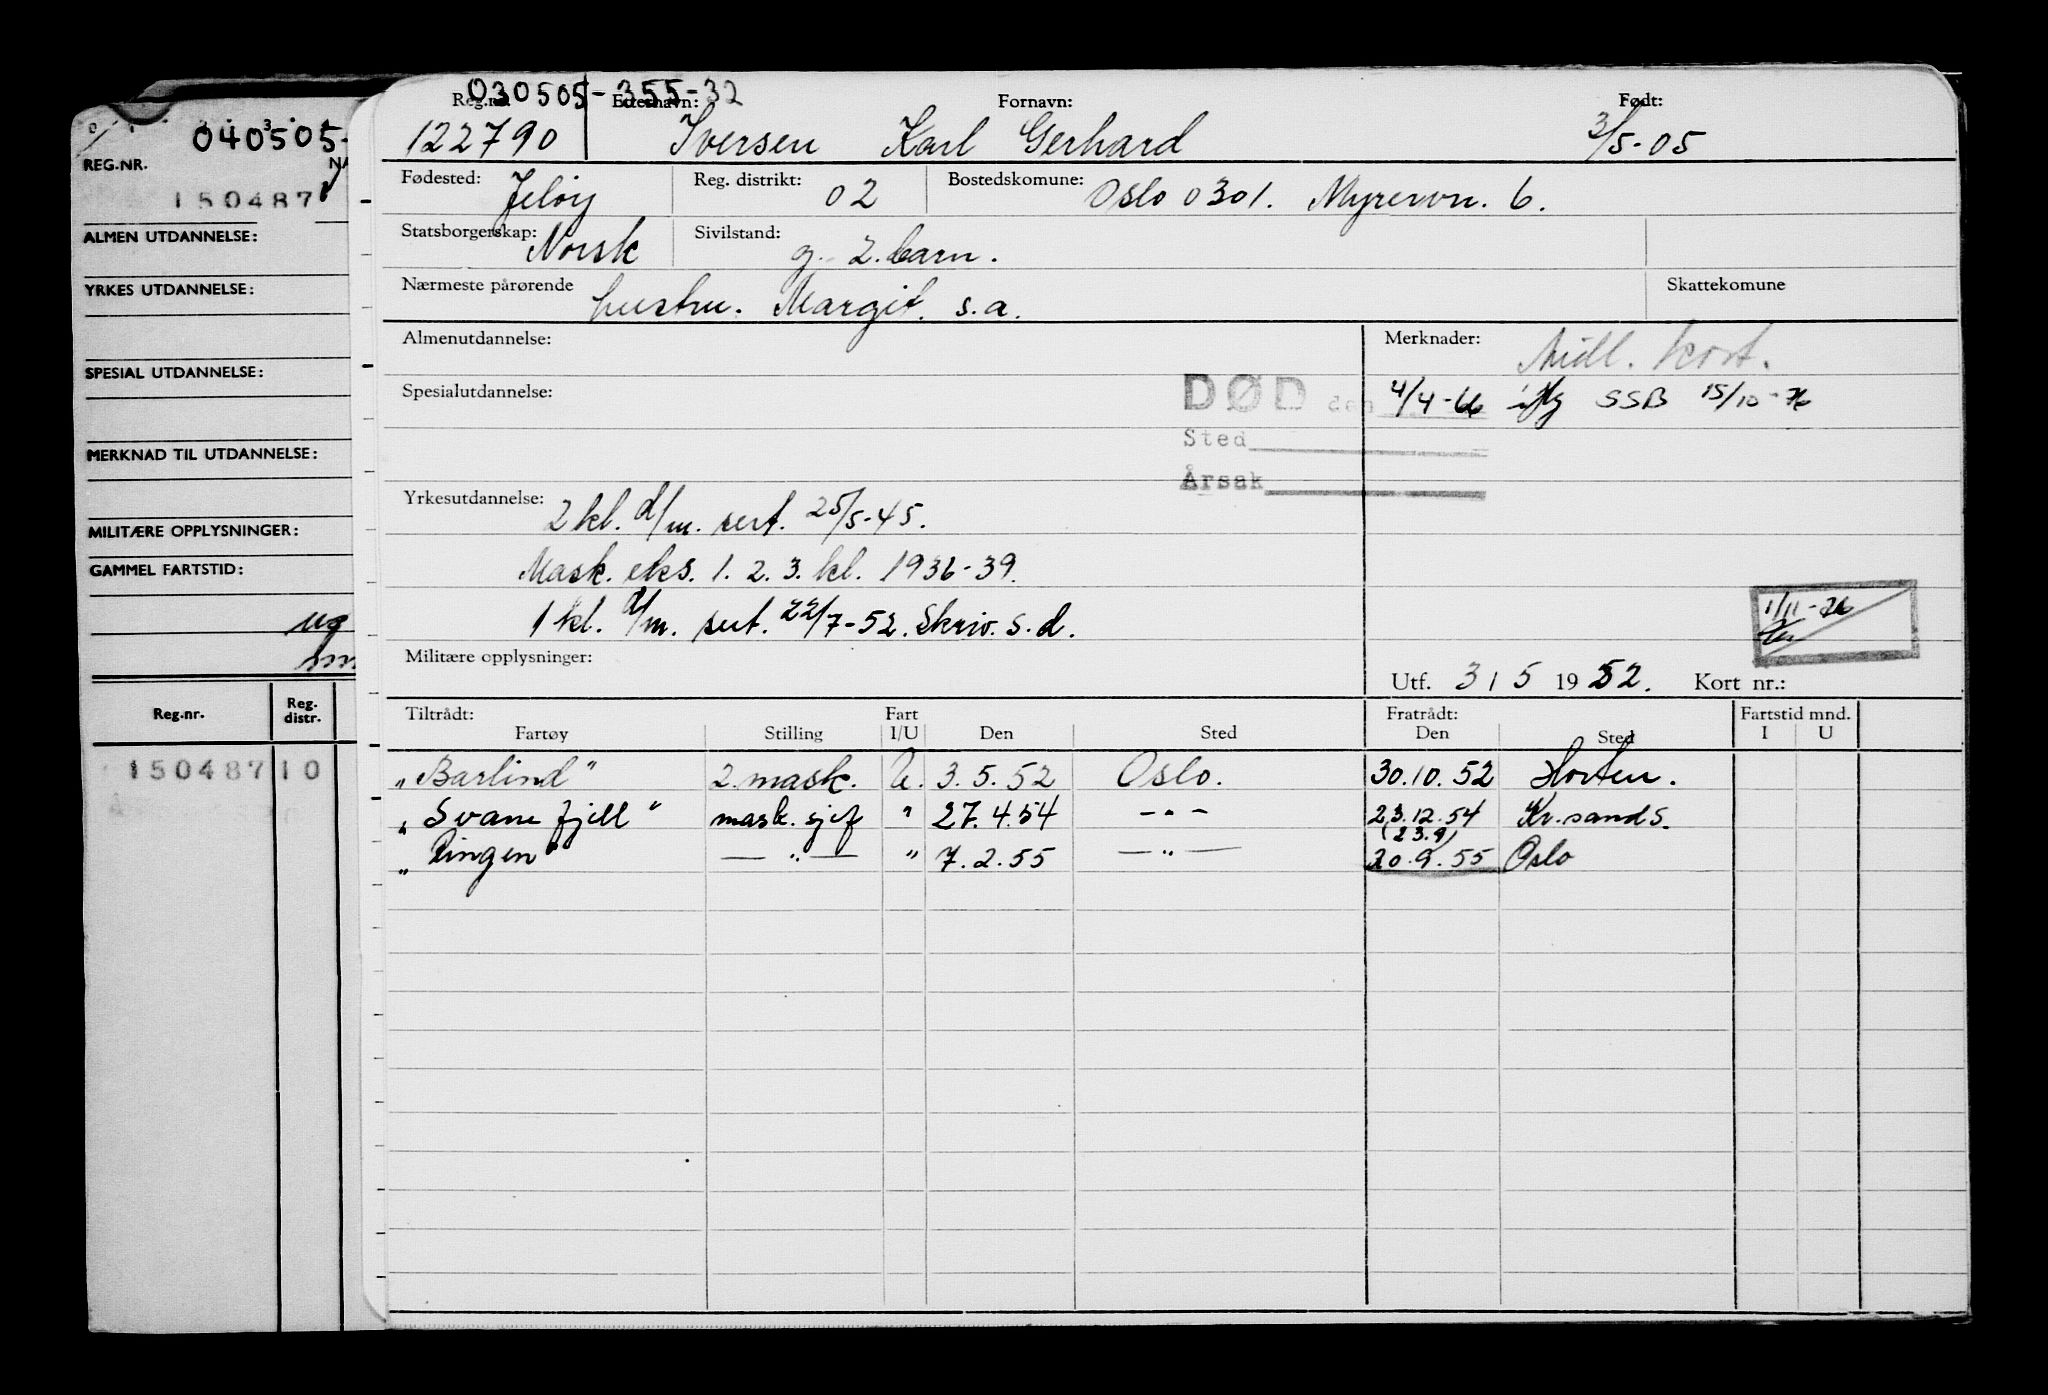 040505-
REG.NR.
150487
ALMEN UTDANNELSE:
YRKES UTDANNELSE:
SPESIAL UTDANNELSE:
MERKNAD TIL UTDANNELSE:
MILITÆRE OPPLYSNINGER:
GAMMEL FARTSTID:
Reg.nr. Reg. distr.
150487 10
030505-355-32
Reg.nr. Etternavn: Fornavn: Født:
122790 Iversen Karl Gerhard 3/5-05
Fødested: Jeløy Reg. distrikt: 02 Bostedskomune: Oslo 0301. Myrervn. 6.
Statsborgerskap: Norsk Sivilstand: g. 2. barn.
Nærmeste pårørende hustru. Margit. s.a. Skattekomune
Almenutdannelse: Merknader: Midl. kort.
Spesialutdannelse: DØD den 4/4-66 iflg SSB 15/10-76
Sted
Årsak
Yrkesutdannelse: 2 kl. d/m. sert. 25/5-45.
Mask. eks. 1. 2. 3. kl. 1936-39.
1 kl. d/m. sert. 22/7-52. Skriv. s. d.
1/11-76
Militære opplysninger:
Utf. 3 / 5 1952. Kort nr.:
Tiltrådt: Fart Fratrådt: Fartstid mnd.
Fartøy Stilling I/U Den Sted Den Sted I U
"Barlind" 2. mask. U. 3.5.52 Oslo. 30.10.52 Horten.
"Svanefjell" mask. sjef " 27.4.54 -"- 23.12.54 Kr.sand S.
(23.9)
"Ringen" -"- " 7.2.55 -"- 20.9.55 Oslo